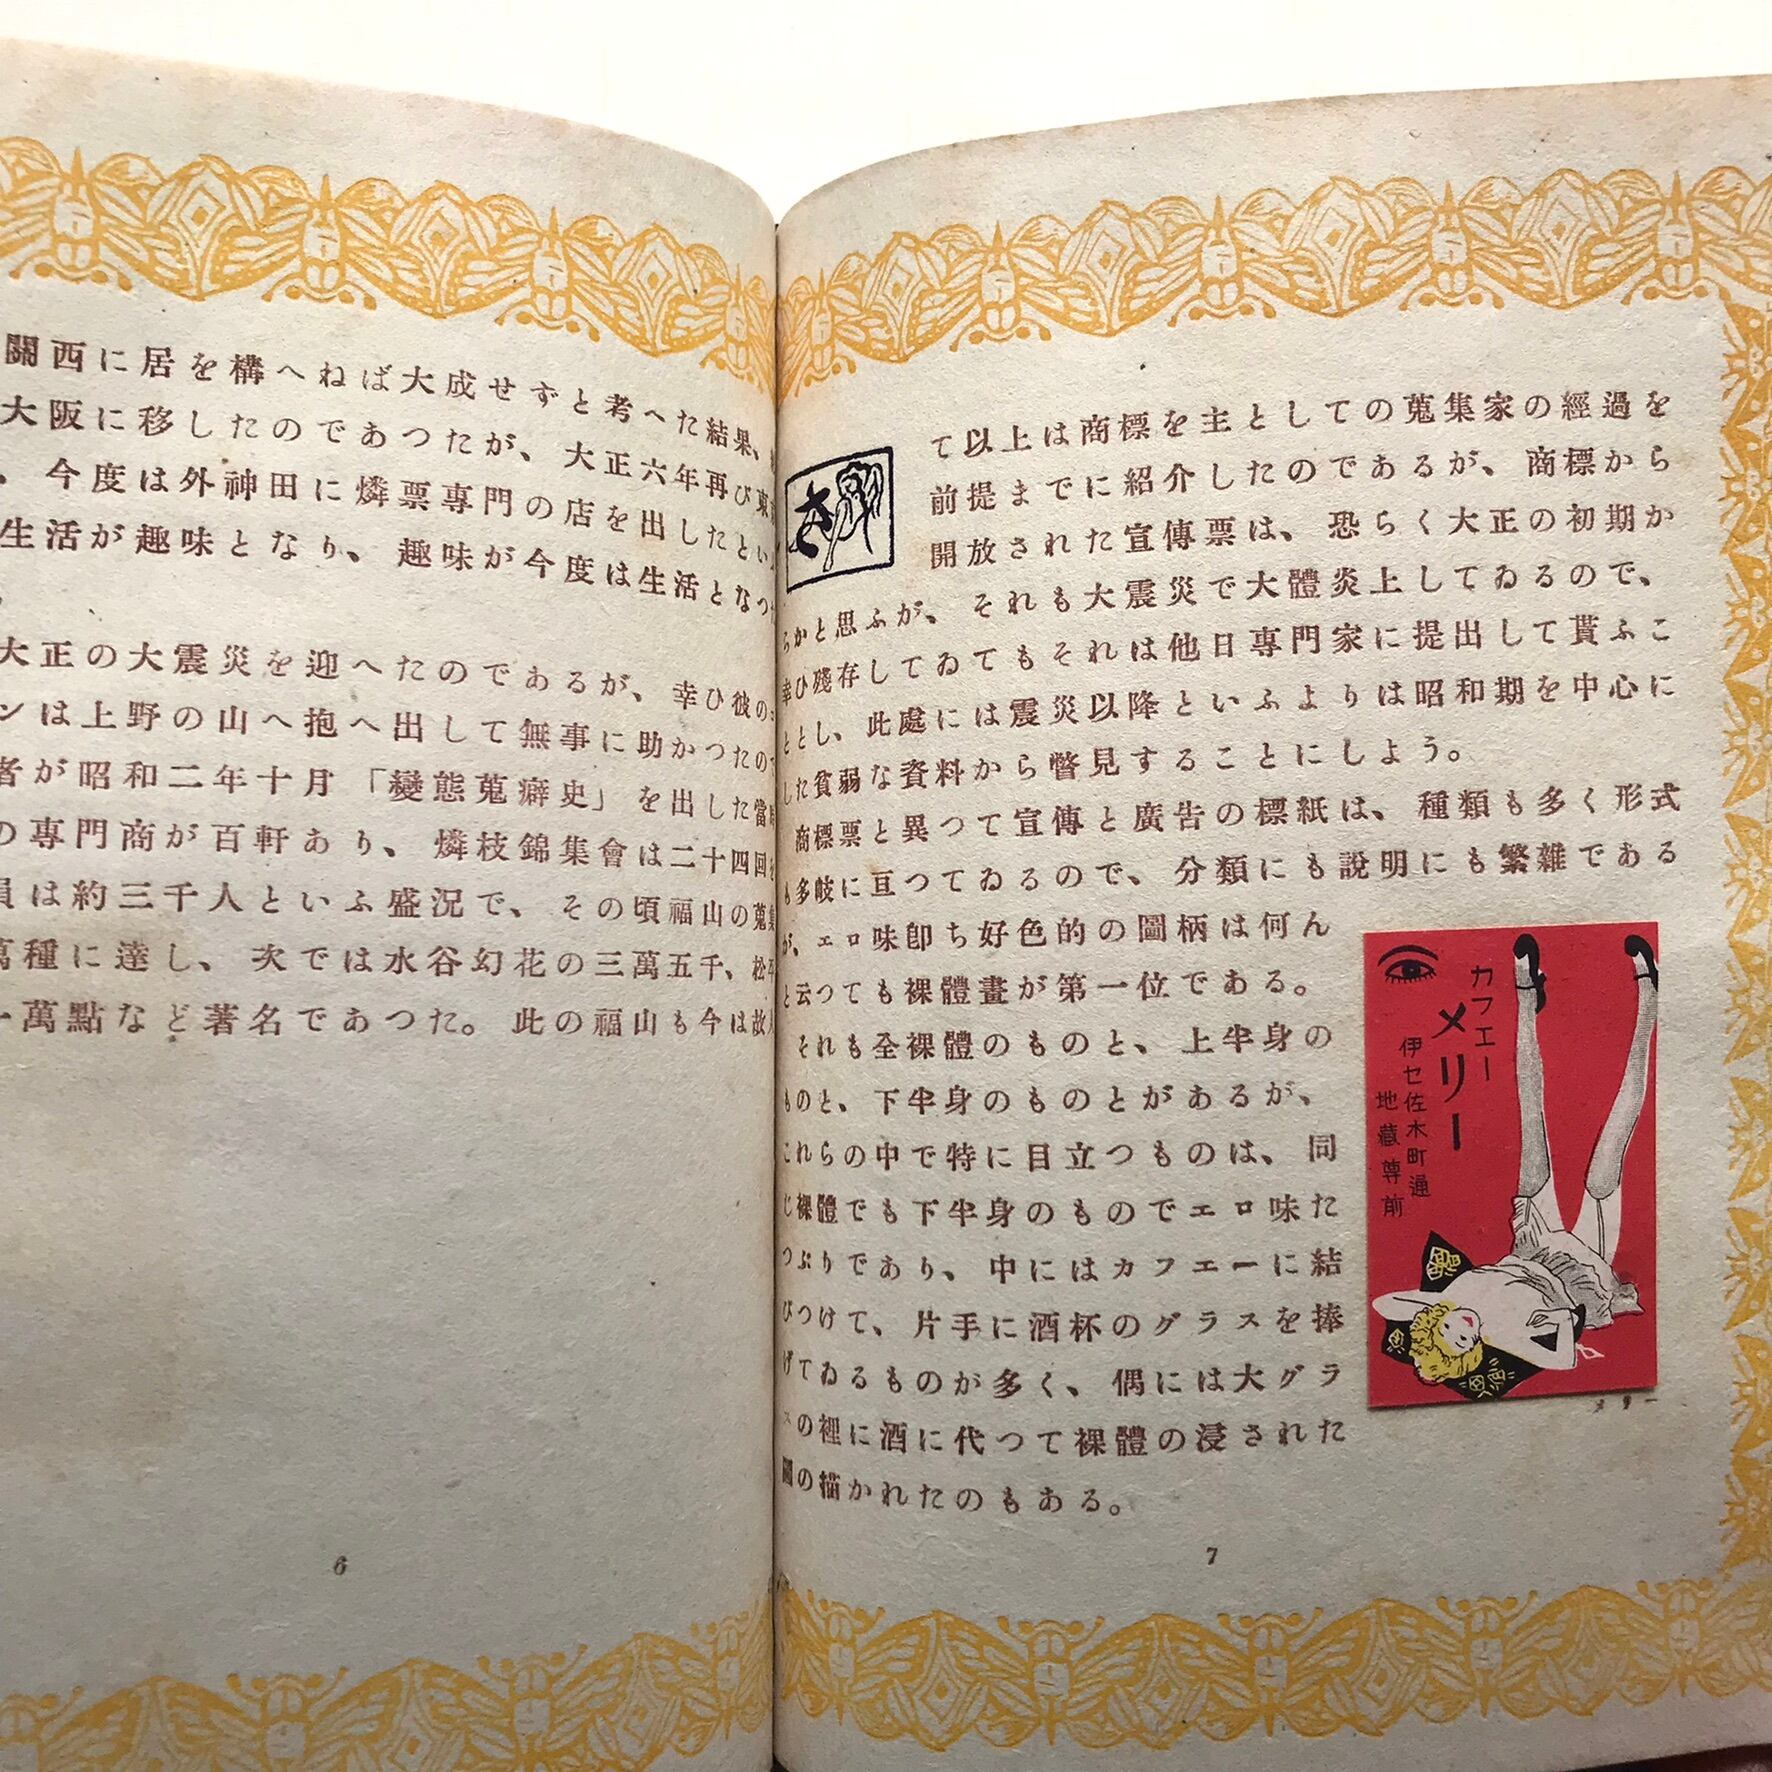 關西に居を構へねば大成せずと考へた結果、
大阪に移したのであつたが、大正六年再び東
、今度は外神田に燐票専門の店を出したとい
生活が趣味となり、趣味が今度は生活となつ
大正の大震災を迎へたのであるが、幸ひ彼の
ンは上野の山へ抱へ出して無事に助かつたの
者が昭和二年十月「變態蒐癖史」を出した當時
の専門商が百軒あり、燐枝錦集會は二十四回を
員は約三千人といふ盛況で、その頃福山の蒐集
萬種に達し、次では水谷幻花の三萬五千、松
一萬點など著名であつた。此の福山も今は故人
6
さ
て以上は商標を主としての蒐集家の經過を
前提までに紹介したのであるが、商標から
開放された宣傳票は、恐らく大正の初期か
らかと思ふが、それも大震災で大體炎上してゐるので、
幸ひ殘存してゐてもそれは他日専門家に提出して貰ふこ
ととし、此處には震災以降といふよりは昭和期を中心に
した貧弱な資料から瞥見することにしよう。
商標票と異つて宣傳と廣告の標紙は、種類も多く形式
も多岐に亘つてゐるので、分類にも説明にも繁雑である
が、エロ味卽ち好色的の圖柄は何ん
と云つても裸體畫が第一位である。
それも全裸體のものと、上半身の
ものと、下半身のものとがあるが、
これらの中で特に目立つものは、同
じ裸體でも下半身のものでエロ味た
つぷりであり、中にはカフエーに結
びつけて、片手に酒杯のグラスを捧
げてゐるものが多く、偶には大グラ
スの裡に酒に代つて裸體の浸された
圖の描かれたのもある。
カフエー
メリー
伊セ佐木町通
地藏尊前
メリー
7